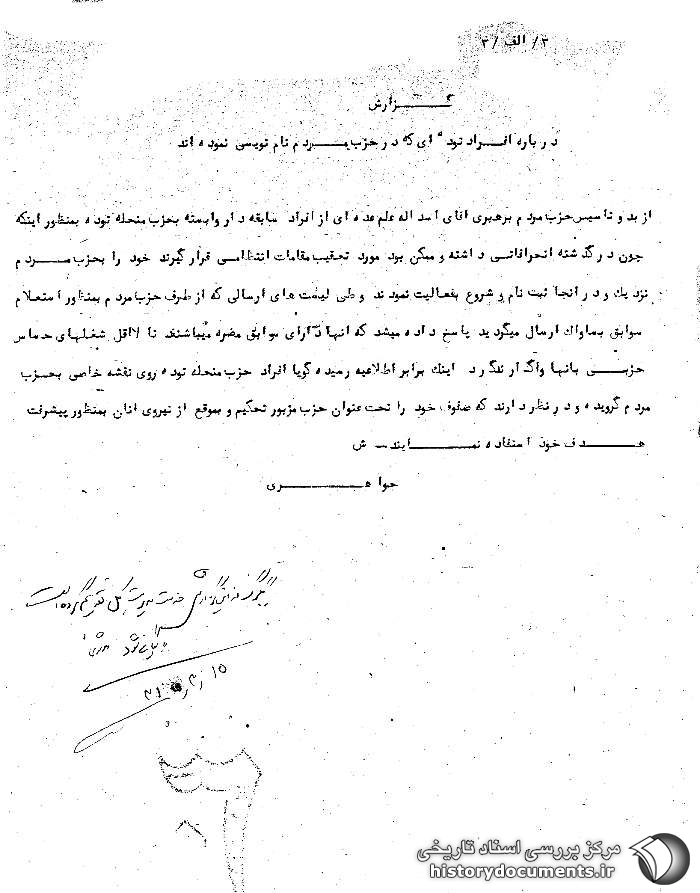 ۳/ الف /۲
گـــــزارش
درباره افـراد توده ای که در حزب مـردم نام نویسی نموده اند
از بدو تاسیس حزب مردم برهبری اقای اسداله علم عده ای از افراد سابقه دار وابسته بحزب منحله توده بمنظور اینکه
چون در گذشته انحرافاتی داشته و ممکن بود مورد تعقیب مقامات انتظامی قرار گیرند خود را بحزب مـــردم
نزدیك و در انجا ثبت نام و شروع بفعالیت نمودند و طی لیست های ارسالی که از طرف حزب مردم بمنظور استعلام
سوابق بساواك ارسال میگردید پاسخ داده میشد که انها دارای سوابق مضره میباشند تا لااقل شغلهای حساس
حزبـــی بانها واگذار نگردد اینك برابر اطلاعیه رسیده گویا افراد حزب منحله توده روی نقشه خاصی بحـزب
مردم گرویده و در نظر دارند که صفوف خود را تحت عنوان حزب مزبور تحکیم و بموقع از نیروی انان بمنظور پیشرفت
هــــــدف خود استفاده نمـــــــایند ـ ش
جواهـــــــــری
گزارش خدمت مدیریت کل تقدیم گردیده است
بایگانی شود
۱۵
مرکز بررسی اسناد تاریخی
historydocuments.ir